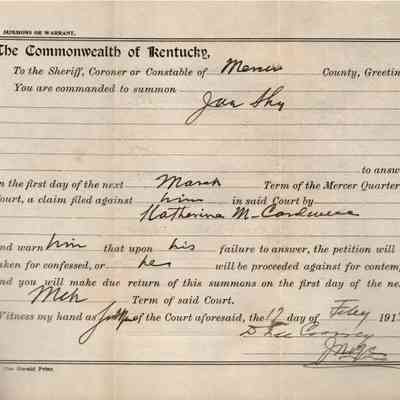 SUMMONS OR WARRANT.
The Commonwealth of Kentucky,
To the Sheriff, Coroner or Constable of Mercer County, Greetin
You are commanded to summon
to answ
n the first day of the next March Term of the Mercer Quarter
ourt, a claim filed against him in said Court by
Katherina M
nd warn him that upon his failure to answer, the petition will
aken for confessed, or he will be proceeded against for contem
nd you will make due return of this summons on the first day of the ne
Mch Term of said Court.
Witness my hand as of the Court aforesaid, the 12 day of Feby 191
The Herald Print.